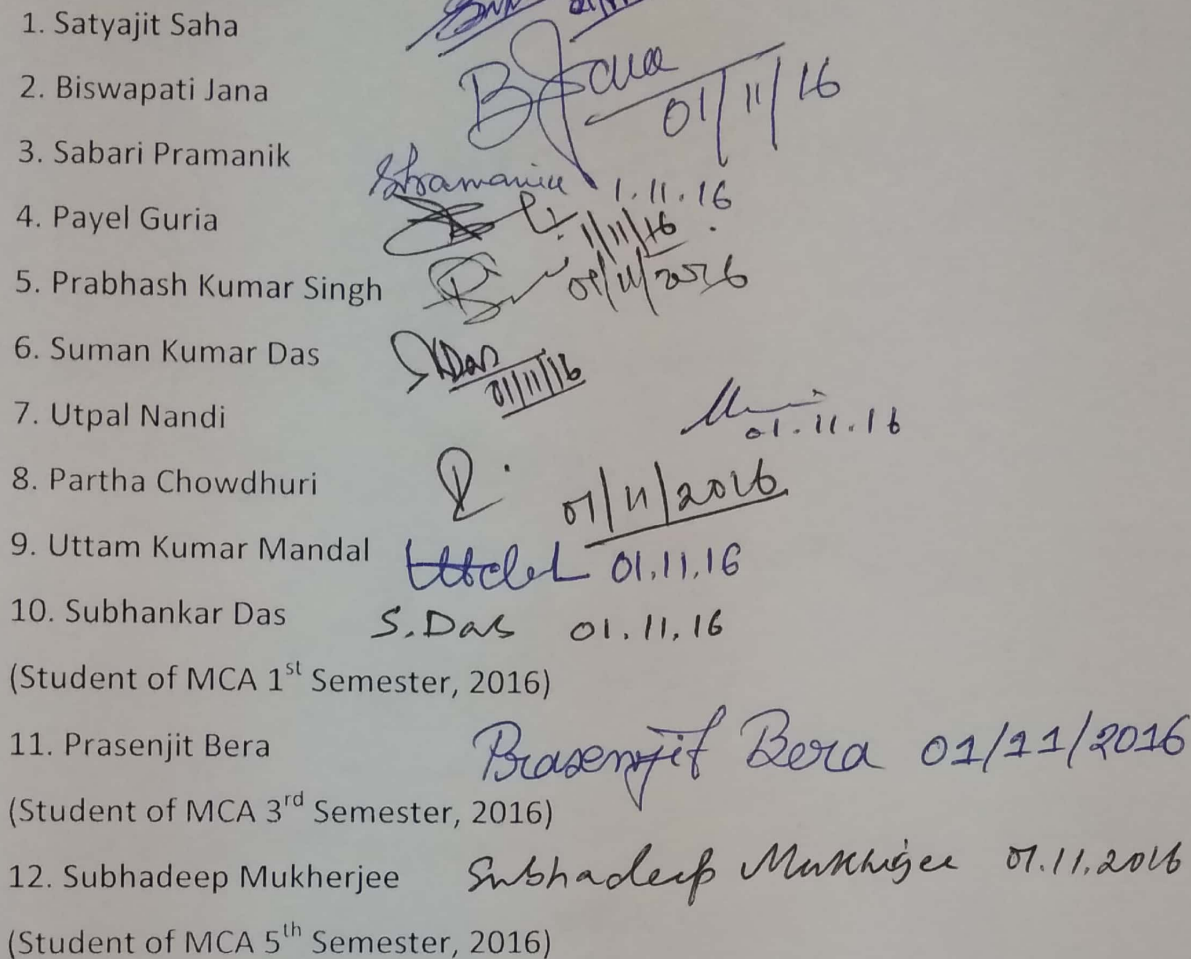 1. Satyajit Saha
2. Biswapati Jana BJana 01/11/16
3. Sabari Pramanik SPramanik 1.11.16
4. Payel Guria 1/11/16
5. Prabhash Kumar Singh 01/11/2016
6. Suman Kumar Das SKDas 01/11/16
7. Utpal Nandi 01.11.16
8. Partha Chowdhuri 01/11/2016
9. Uttam Kumar Mandal 01.11.16
10. Subhankar Das S.Das 01.11.16
(Student of MCA 1st Semester, 2016)
11. Prasenjit Bera Prasenjit Bera 01/11/2016
(Student of MCA 3rd Semester, 2016)
12. Subhadeep Mukherjee Subhadeep Mukherjee 01.11.2016
(Student of MCA 5th Semester, 2016)